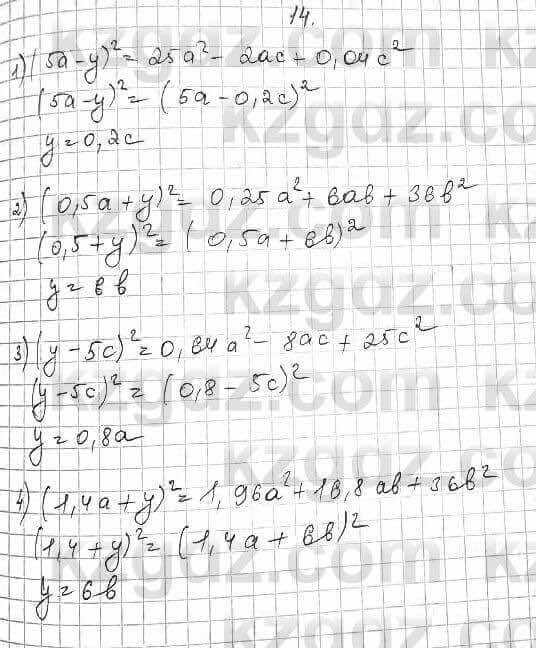 14.
1) (5a-y)² = 25a² - 2ac + 0,04c²
(5a-y)² = (5a-0,2c)²
y = 0,2c
2) (0,5a+y)² = 0,25a² + 6ab + 36b²
(0,5+y)² = (0,5a+6b)²
y = 6b
3) (y-5c)² = 0,64a² - 8ac + 25c²
(y-5c)² = (0,8-5c)²
y = 0,8a
4) (1,4a+y)² = 1,96a² + 16,8ab + 36b²
(1,4+y)² = (1,4a+6b)²
y = 6b
kzgdz.com